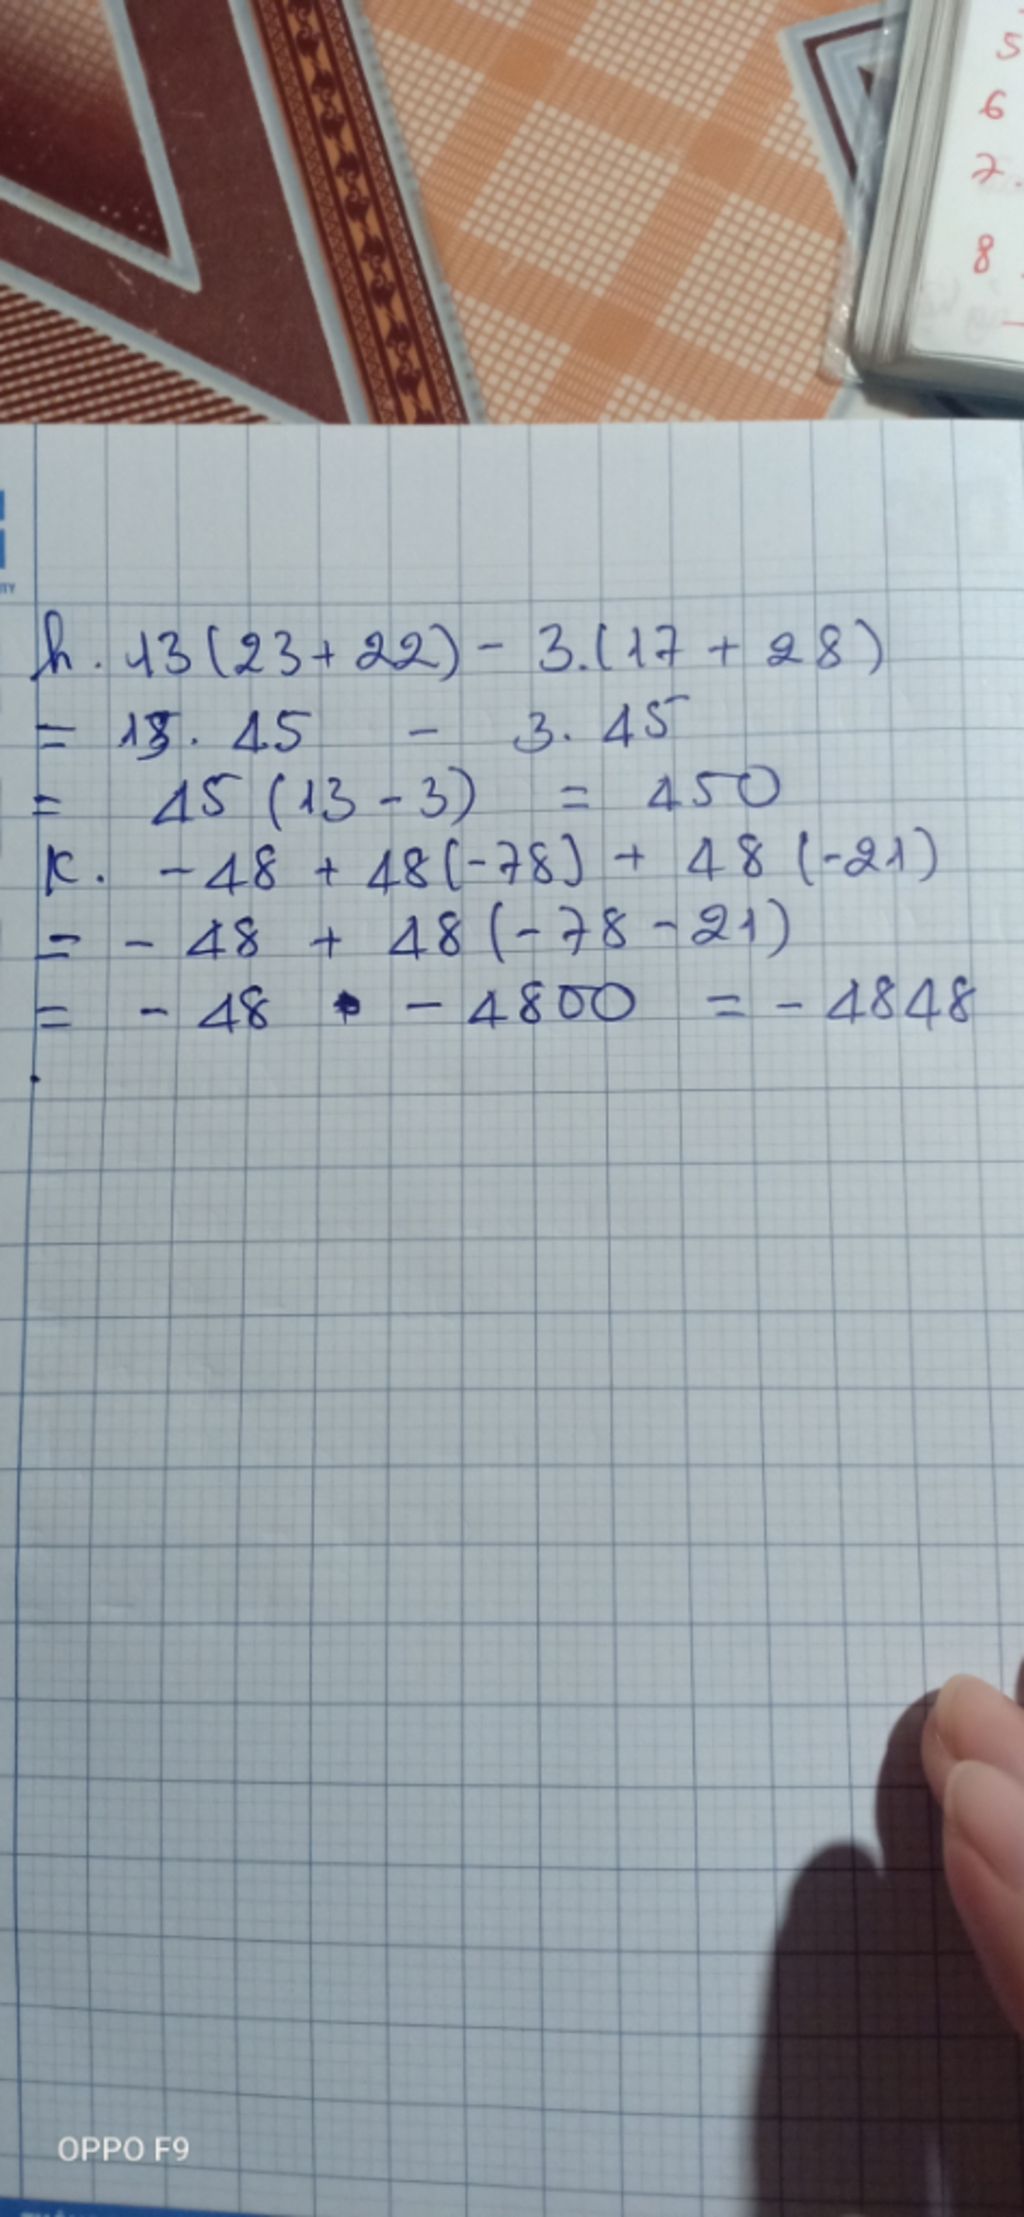 5
6
7.
8
TY
h. 13(23+22) - 3.(17 + 28)
= 13. 45 - 3. 45
= 45 (13-3) = 450
K. -48 + 48(-78) + 48 (-21)
= - 48 + 48 (-78-21)
= - 48 - 4800 = - 4848
OPPO F9